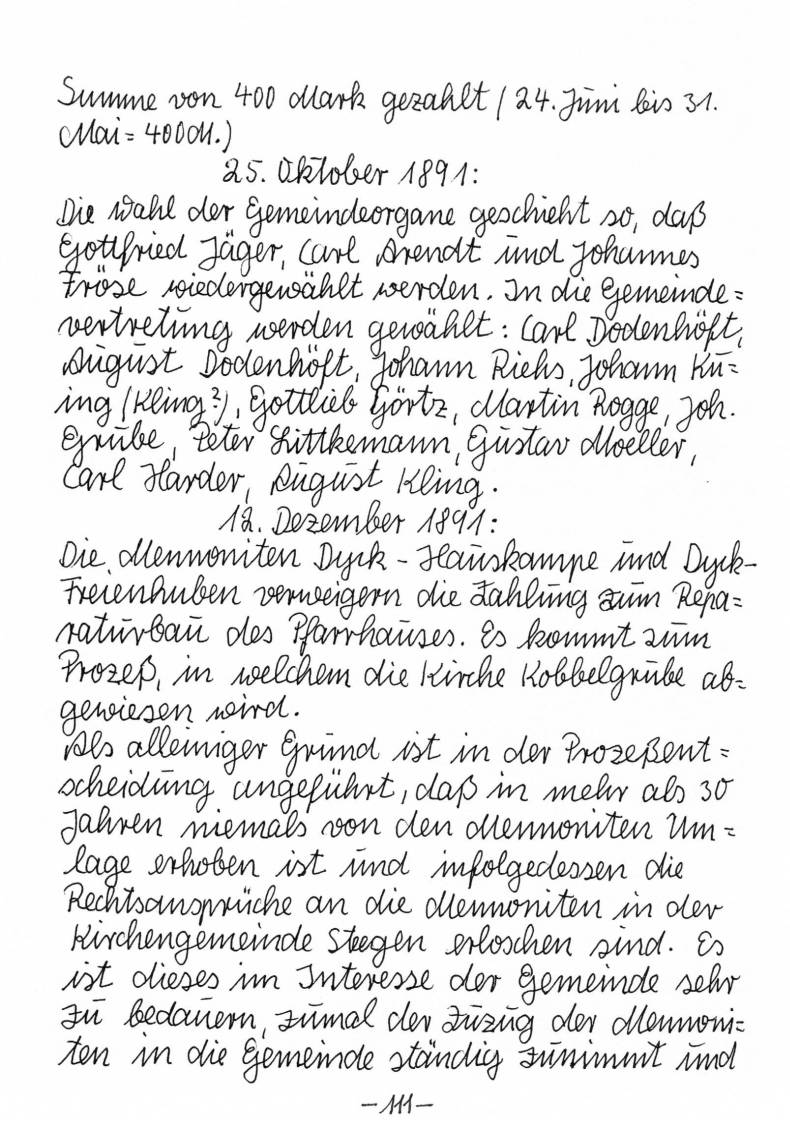 Summe von 400 Mark gezahlt (24. Juni bis 31.
Mai = 400 M.)
25. Oktober 1891:
Die Wahl der Gemeindeorgane geschieht so, daß
Gottfried Jäger, Carl Arendt und Johannes
Fröse wiedergewählt werden. In die Gemeinde=
vertretung werden gewählt: Carl Dodenhöft,
August Dodenhöft, Johann Riehs, Johann Kü=
ing (Kling?), Gottlieb Görtz, Martin Rogge, Joh.
Grube, Peter Littkemann, Gustav Moeller,
Carl Harder, August Kling.
12. Dezember 1891:
Die Mennoniten Dyck - Hauskampe und Dyck-
Freienhuben verweigern die Zahlung zum Repa=
raturbau des Pfarrhauses. Es kommt zum
Prozeß, in welchem die Kirche Kobbelgrube ab=
gewiesen wird.
Als alleiniger Grund ist in der Prozeßent=
scheidung angeführt, daß in mehr als 30
Jahren niemals von den Mennoniten Um=
lage erhoben ist und infolgedessen die
Rechtsansprüche an die Mennoniten in der
Kirchengemeinde Steegen erloschen sind. Es
ist dieses im Interesse der Gemeinde sehr
zu bedauern, zumal der Zuzug der Mennoni=
ten in die Gemeinde ständig zunimmt und
- 111 -